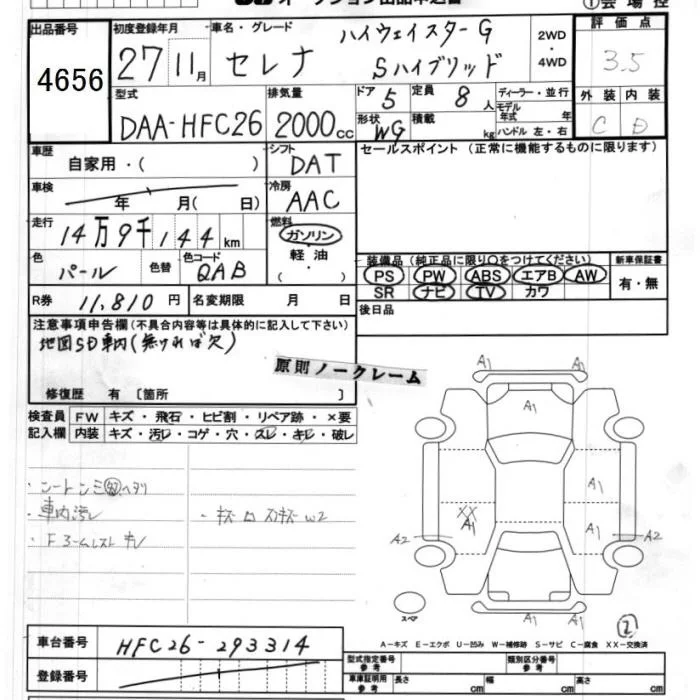 ①会場控
オークション出品申込書
出品番号
4656
初度登録年月
27 11月
車名・グレード
セレナ
ハイウェイスターG
Sハイブリッド
2WD
・
4WD
評価点
3.5
外装 内装
C D
型式
DAA-HFC26
排気量
2000cc
ドア 5
定員 8人
形状 WG
積載 kg
ディーラー・並行
モデル年式 年
ハンドル 左・右
車歴
自家用・( )
シフト
DAT
セールスポイント(正常に機能するものに限ります)
車検
年 月(日)
冷房
AAC
走行
14万9千144km
燃料
ガソリン
・
軽油
・
( )
色
パール
色替
色コード
QAB
装備品(純正品に限り○をつけてください)
PS PW ABS エアB AW
SR ナビ TV カワ
新車保証書
有・無
R券 11,810円
名変期限 月 日
後日品
注意事項申告欄(不具合内容等は具体的に記入して下さい)
地図SD車内(無ければ欠)
原則ノークレーム
修復歴 有〔箇所 〕
検査員記入欄
FW キズ・飛石・ヒビ割・リペア跡・×要
内装 キズ・汚レ・コゲ・穴・スレ・キレ・破レ
・車内汚レ
A1
A1
A1
A1
A1
XX
A1
A2
A2
A1
A1
スペア
②
A-キズ E-エクボ U-凹み W-補修跡 S-サビ C-腐食 XX-交換済
車台番号
HFC26-293314
登録番号
型式指定番号
参考
類別区分番号
参考
車庫証明用
参考
長さ cm
幅 cm
高さ cm